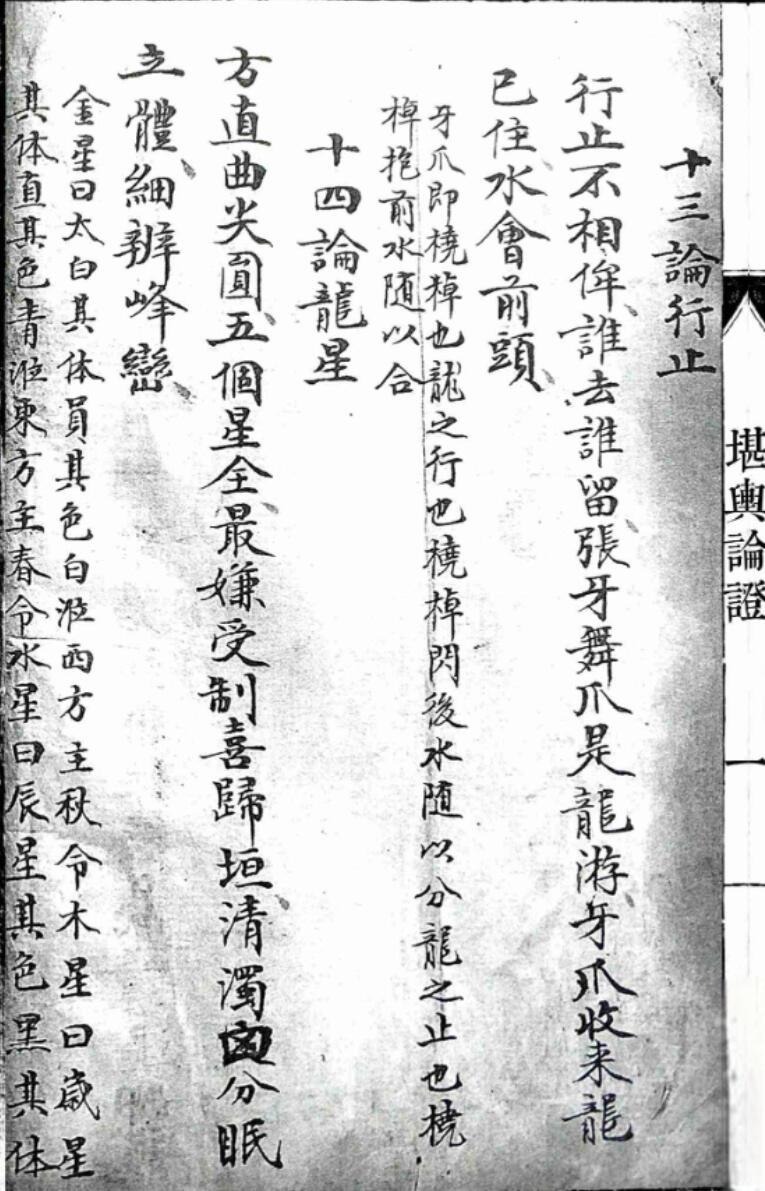 堪輿論證
一
十三論行止
行止不相侔誰去誰留張牙舞爪是龍游牙爪收来龍
已住水會前頭
牙爪即橈棹也龍之行也橈棹閃後水随以分龍之止也橈
棹抱前水随以合
十四論龍星
方直曲尖圓五個星全最嫌受制喜歸垣清濁分眠
立體細辨峰巒
金星曰太白其体員其色白涖西方主秋令木星曰歲星
其体直其色青涖東方主春令水星曰辰星其色黑其体